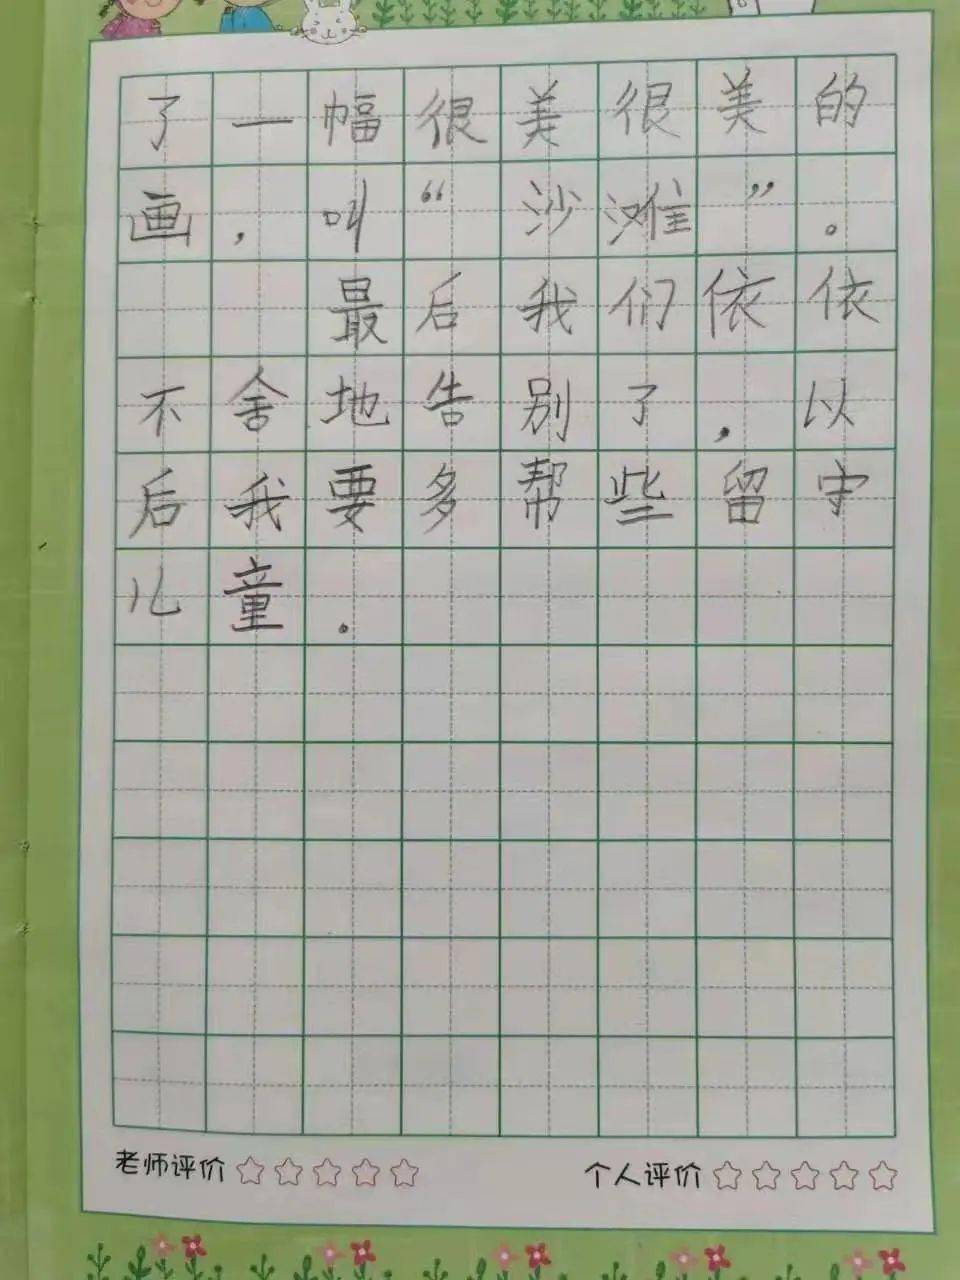 了一幅很美很美的
画，叫“沙滩”。
最后我们依依
不舍地告别了，以
后我要多帮些留守
儿童.
老师评价 个人评价